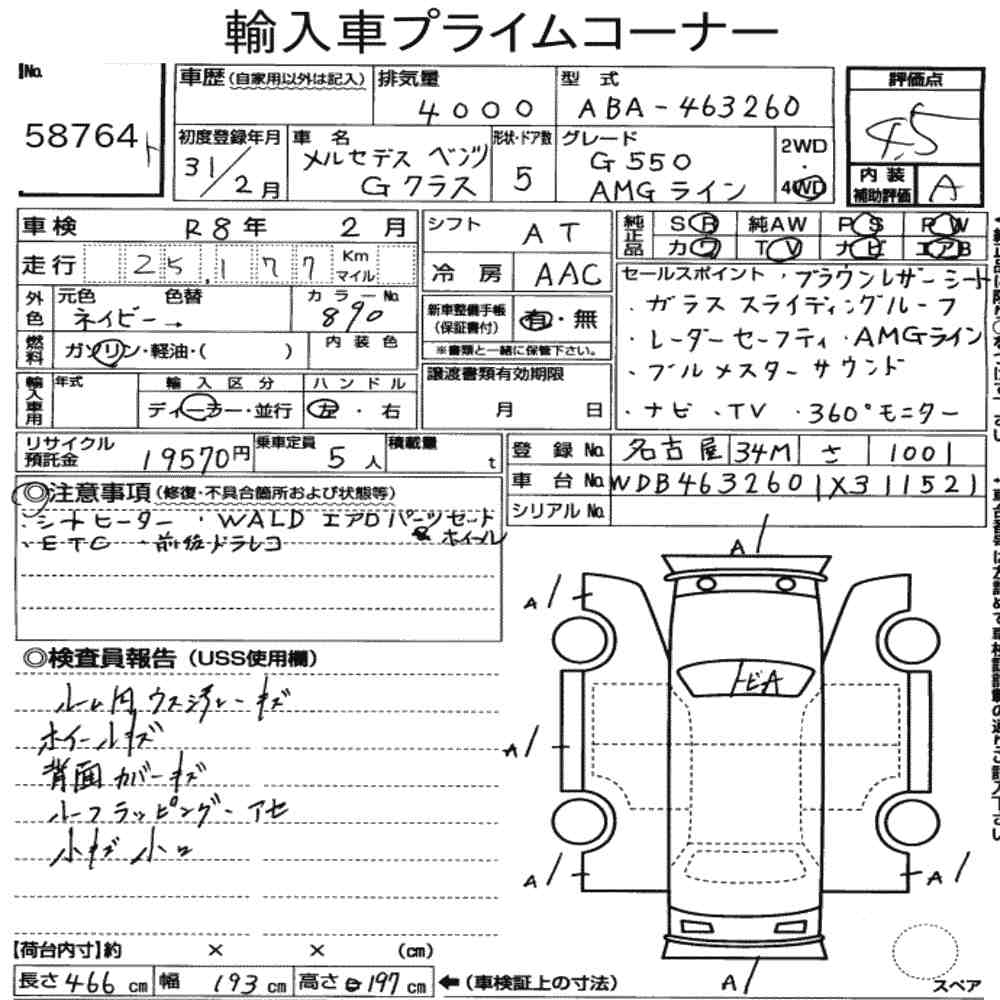 輸入車プライムコーナー
No. 58764
車歴 (自家用以外は記入)
排気量 4000
型式 ABA-463260
評価点 4.5
初度登録年月 31/2月
車名 メルセデス ベンツ Gクラス
形状・ドア数 5
グレード G550 AMGライン
2WD・4WD
内装補助評価 A
車検 R8年 2月
シフト AT
純正品 SR 純AW PS PW
カワ TV ナビ エアB
走行 25,177 Km マイル
冷房 AAC
セールスポイント ・ブラウンレザーシート
・ガラス スライディングルーフ
・レーダーセーフティ ・AMGライン
・ブルメスターサウンド
・ナビ ・TV ・360°モニター
外色 元色 ネイビー→ 色替
カラーNo. 890
新車整備手帳 (保証書付) 有・無
※書類と一緒に保管下さい。
燃料 ガソリン・軽油・( )
内装色
輸入車用 年式
輸入区分 ディーラー・並行
ハンドル 左・右
譲渡書類有効期限
月 日
リサイクル預託金 19570円
乗車定員 5人
積載量 t
登録No. 名古屋 34M さ 1001
車台No. WDB4632601X311521
シリアルNo.
◎注意事項 (修復・不具合箇所および状態等)
・シートヒーター ・WALD エアロパーツセット
& ホイール
・ETC ・前後ドラレコ
◎検査員報告 (USS使用欄)
ルーム内ウスシ汚レ・キズ
ホイールキズ
背面カバーキズ
ルーフラッピング・アセ
小キズ小凹
A/
A/
トビA
A/
A/
A/
A/
【荷台内寸】約 × × (cm)
長さ 466 cm 幅 193 cm 高さ 197 cm ←(車検証上の寸法)
スペア